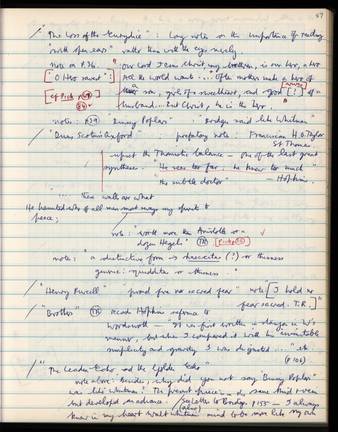 87
"The Loss of the Eurydice": Long note on the importance of reading
"with open ears" rather than with the eyes merely.
Note on P.36. "Our Lord Jesus Christ, my brethren, is our hero, a hero
"O Hero savest": all the world wants ... often mothers make a hero of
[cf Pick a son, girls of a sweetheart, and good [!] of a
husband ... but Christ, he is the hero."
note: "Binsey Poplars" Bridges said like Whitman"
"Duns Scotus's Oxford" prefatory note: Franciscan
St Thomas.
upset the Thomistic balance – one of the last great
syntheses. "He saw too far; he knew too much
the subtle doctor" – Hopkins.
These walls are what
He haunted who of all men most sways my spirits to
peace;
note: "world more than Aristotle or a
dozen Hegels" TR Pick
note: "a distinctive form → haecceitas (!) or thisness
generic: quidditas or whatness."
"Henry Purcell" "proud fire or sacred fear" note [I hold as
fear sacred. T.R.]"
"Brothers" TR Hopkins reference to
Wordsworth – "It was first written in stanzas in W's
manner, but when I compared it with his inimitable
simplicity and gravity I was disgusted ..." etc
(p 106)
"The Leaden Echo and the Golden Echo"
note above: Besides, why did you not say "Binsey Poplars"
was like Whitman? The present piece is in the same kind & vein
but developed, an advance. (see Letter to Bridges P155 – I always
(also)
knew in my heart Walt Whitman's mind to be more like my own